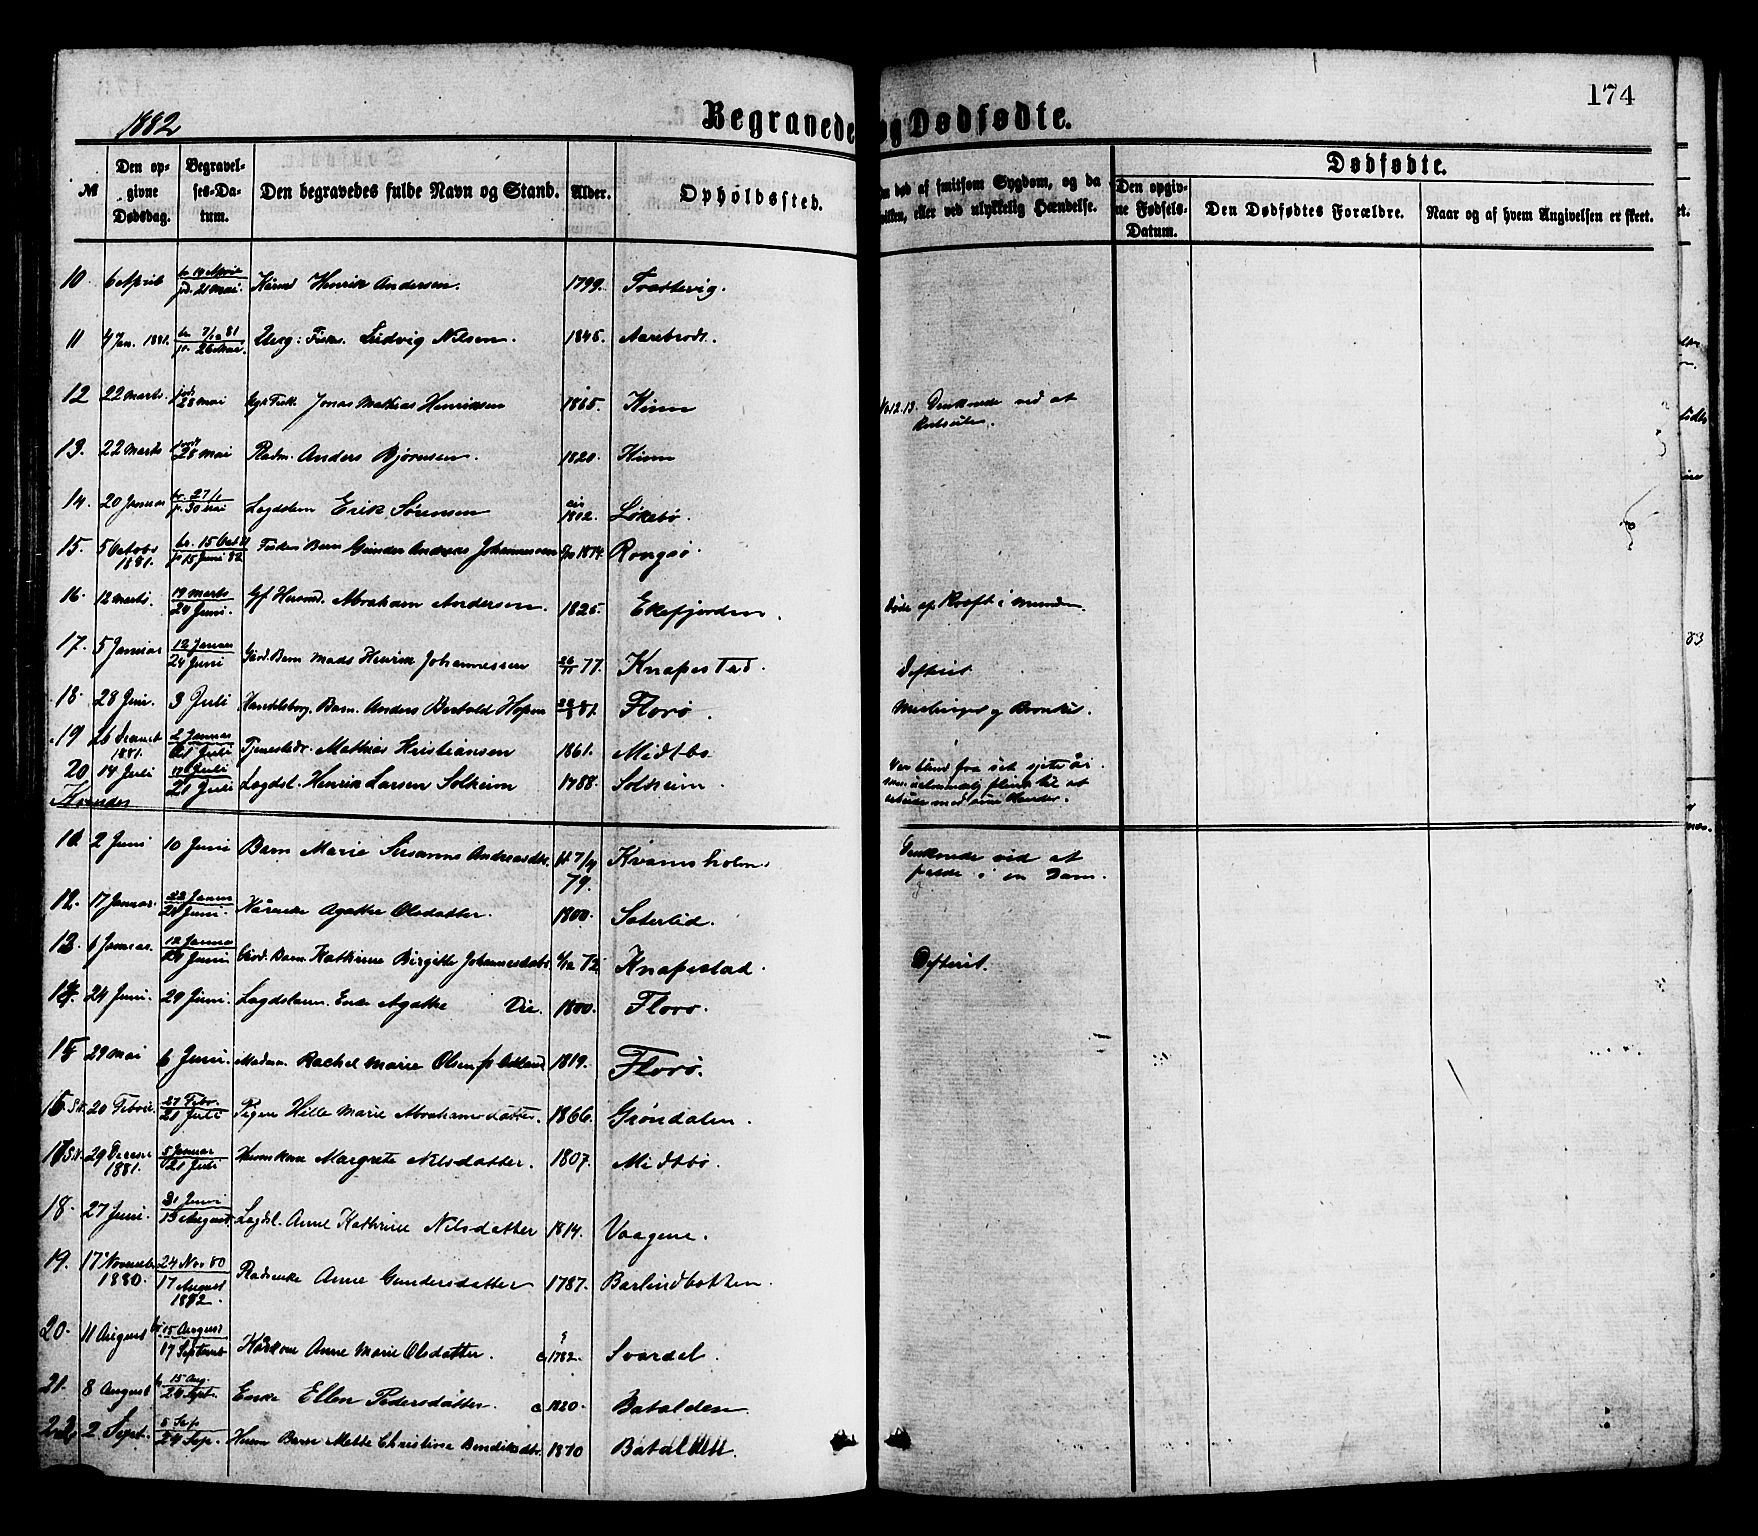 174
1882
Begravede og Dødfødte.
№
Den opgivne Dødsdag.
Begravelses-Datum.
Den begravedes fulde Navn og Stand.
Alder.
Opholdssted.
død af smitsom Sygdom, og da
eller ved ulykkelig Hændelse.
Dødfødte.
Den opgivne Fødsels-Datum.
Den Dødfødtes Forældre.
Naar og af hvem Angivelsen er skeet.
10. 6 April 14 April 21 Mai. Henrik Andersen. 1799. Trættevig.
11 4 Jan. 1881. 26 Mai. Ludvig Nilsen. 1845. Aarebrodt.
12 22 Marts. 28 Mai Jonas Mathias Henriksen 1865. Kinn No 12.13. Druknede ved at
13. 22 Marts 28 Mai Radm. Anders Bjørnsen. 1820. Kinn
14. 20 Januar br. 27/1 30 Mai Lægdslem Erik Sørensen 1812. Løkebø.
15. 5 Octobr 1881. br. 15 Oct 81 15 Juni 82 Fiskers Barn Gunder Andreas Johannessen 1874. Rongsø.
16. 12 Marts. 19 Marts 24 Juni. Abraham Andersen. 1825. Ekefjorden. Døde af Kræft i Munden.
17. 5 Januar 12 Januar 24 Juni Gård. Barn Mads Henrik Johannessen 77. Knapestad. Difterit.
18. 28 Juni. 3 Juli Handelsborg. Barn. Anders Bertold Hopen 81. Florø. Meslinger og Bronkit.
19 26 Decemb 1881. 2 Januar 21 Juli Tjenestedr. Mathias Kristiansen 1861. Midtbø
20 14 Juli 21 Juli Lægdsl. Henrik Larsen Solheim 1788. Solheim. Var blind fra sit sjette år
Kvinder
11. 2 Juni 10 Juni Barn Marie Susanne Andreasdtr. 79. Kvamsholm Druknede ved at falde i en Dam.
12. 17 Januar. 22 Januar 24 Juni. Agathe Olsdatter. 1800. Sæterlid.
13 6 Januar. 12 Januar 24 Juni Gård. Barn Kathrine Birgitte Johannesdatr. 72 Knapestad. Difterit.
14. 24 Juni. 29 Juni. Lægdslem. Enke Agathe Die. 1800. Florø.
15 29 Mai 6 Juni. Madam. Rachel Marie Olsen 1819. Florø.
16. 20 Februar. 27 Febr. 21 Juli Pigen Hille Marie Abrahamsdatter. 1866. Grøndalen.
17. 29 Decemb 1881. 5 Januar 21 Juli Margrete Nilsdatter. 1807. Midtbø.
18. 27 Juni. 13 August Lægdsl. Anne Kathrine Nilsdatter 1814. Vaagene.
19. 17 Novembr 1880. 24 Nov 80 17 August 1882. Radenke Anne Gundersdatter 1787. Barlindbotten.
20. 11 August br. 15 August 17 Septembr Kårkone Anne Marie Olsdatter. 1782. Svardal.
21. 8 August 15 Aug. 24 Sept. Enke Ellen Pedersdatter. c 1820. Batalden.
22. 2 Sept. 24 Sep. Barn Mette Christine Bendiksdtr. 1870 Batalden.